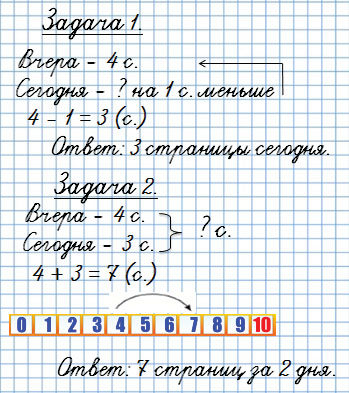 Задача 1.
Вчера - 4 с.
Сегодня - ? на 1 с. меньше
4 - 1 = 3 (с.)
Ответ: 3 страницы сегодня.
Задача 2.
Вчера - 4 с.
Сегодня - 3 с.
? с.
4 + 3 = 7 (с.)
0 1 2 3 4 5 6 7 8 9 10
Ответ: 7 страниц за 2 дня.